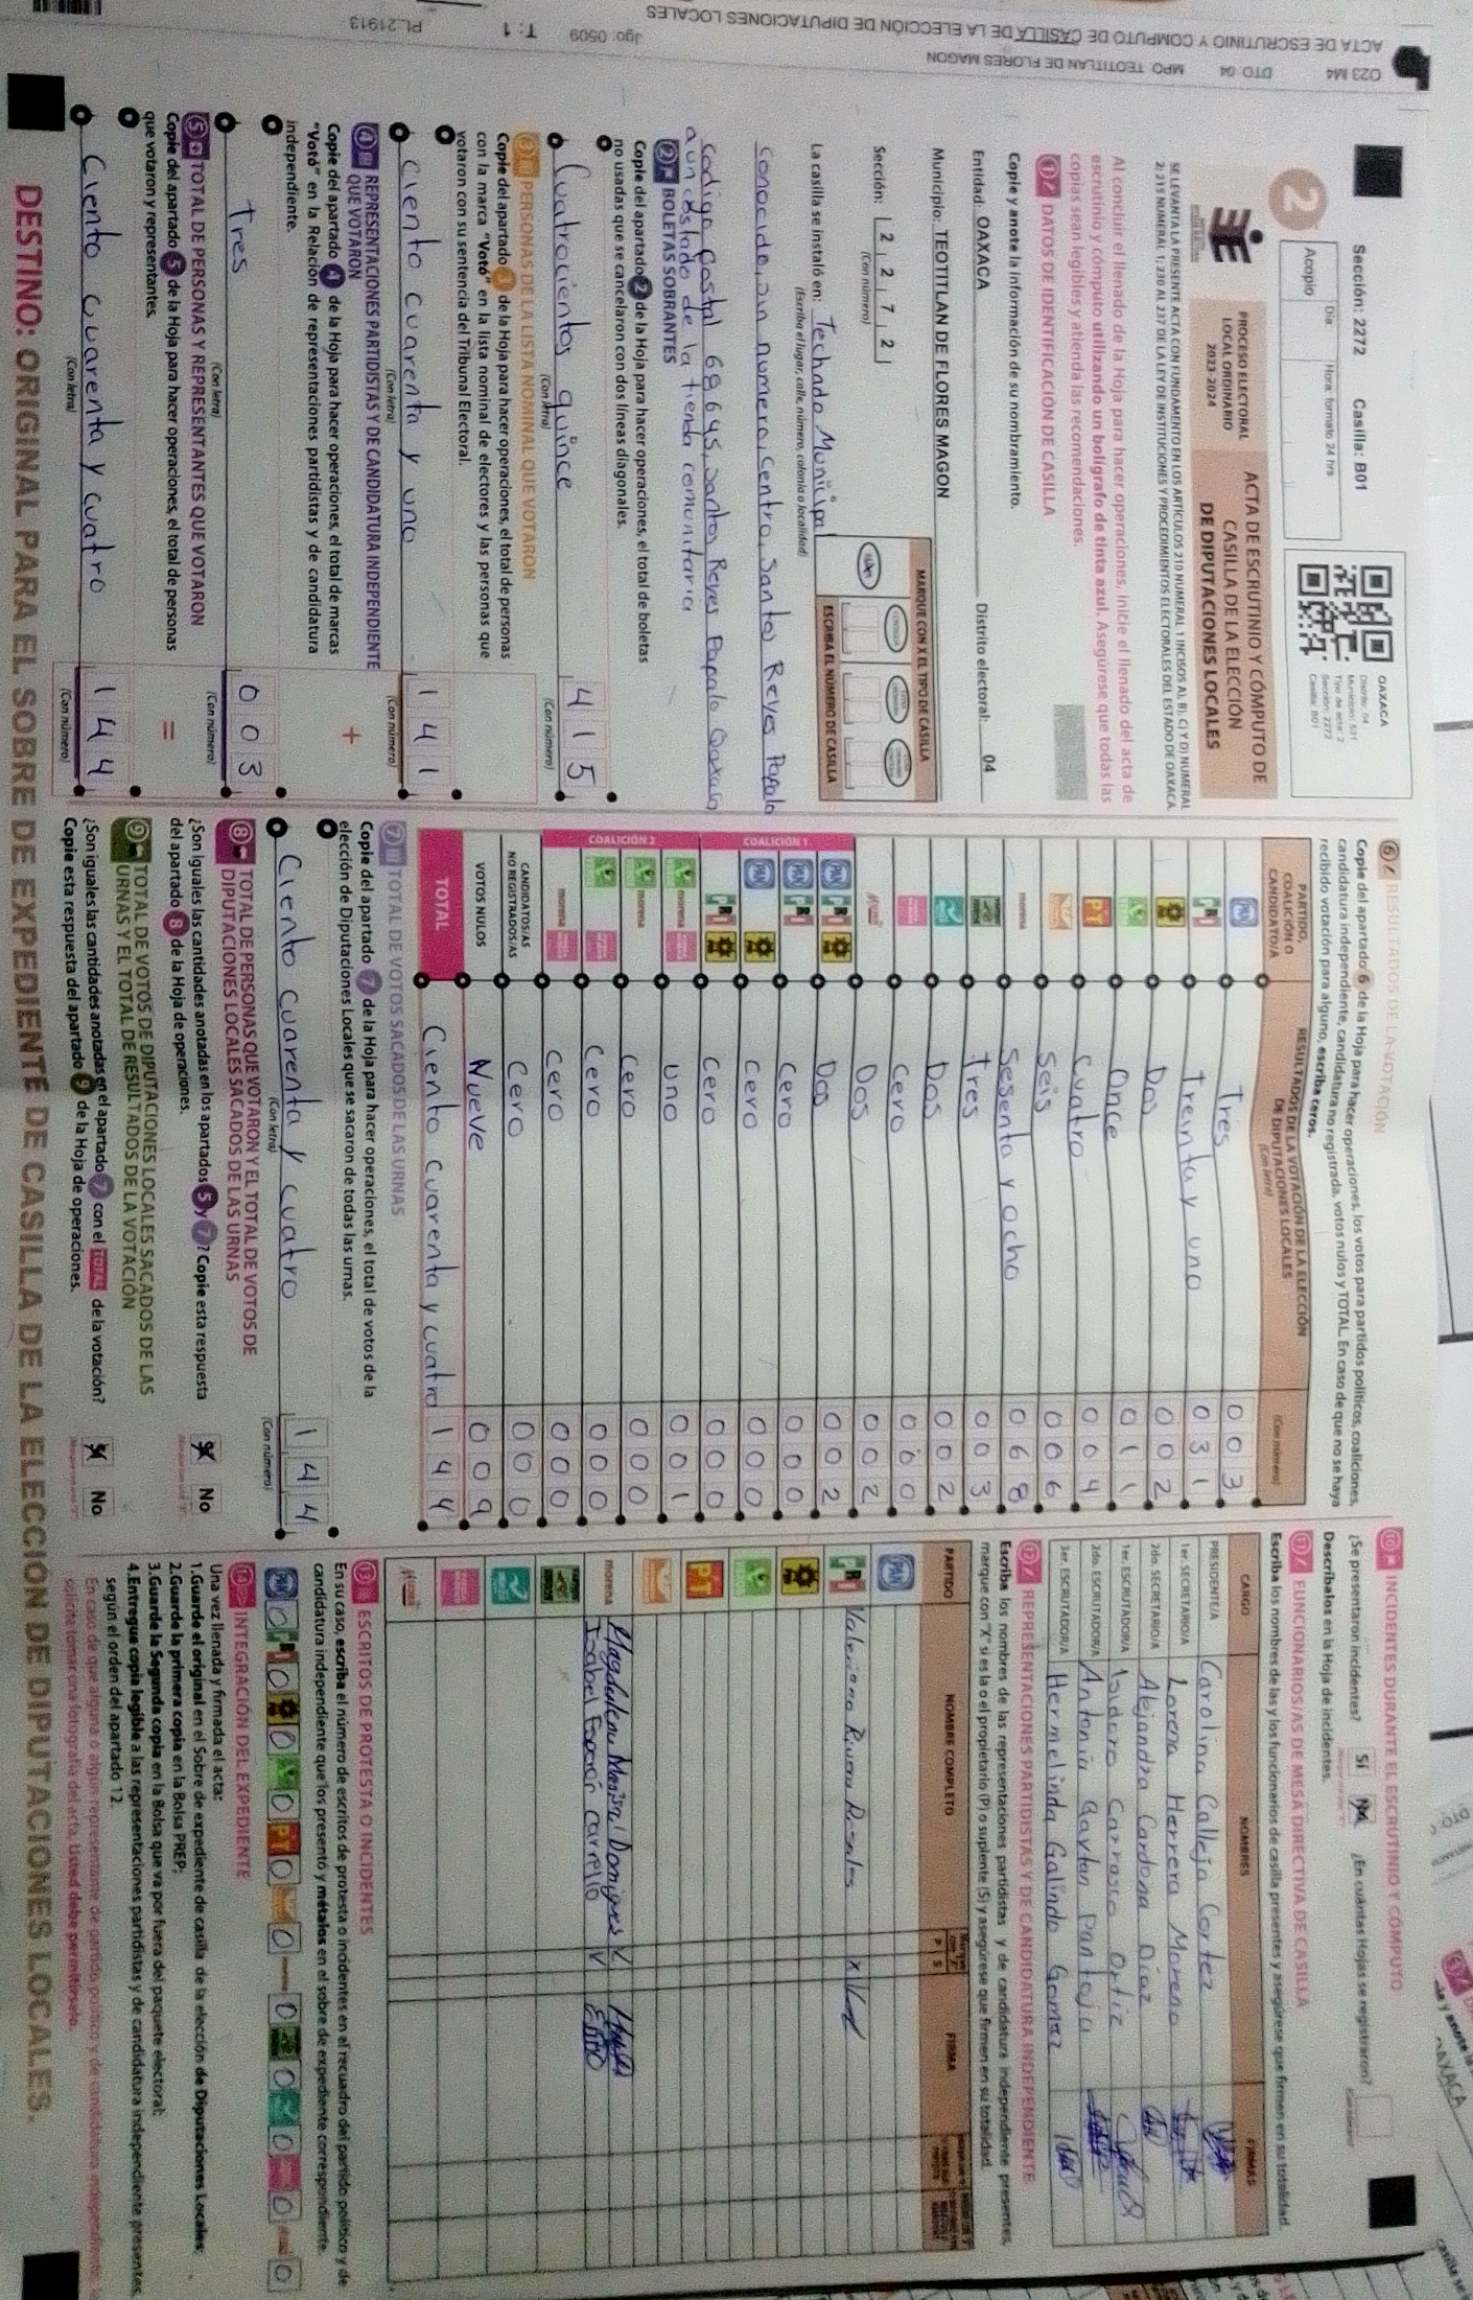 023 M4 DTO. 04 MPO. TEOTITLAN DE FLORES MAGON
ACTA DE ESCRUTINIO Y CÓMPUTO DE CASILLA DE LA ELECCIÓN DE DIPUTACIONES LOCALES
Jgo: 0509 T: 1 PL:21913
Sección: 2272 Casilla: B01
Día Hora: formato 24 hrs
Acopio
2
OAXACA
Distrito: 04
Tipo de acta: 2
Sección: 2272
Casilla: B01
PROCESO ELECTORAL
LOCAL ORDINARIO
2023-2024
ACTA DE ESCRUTINIO Y CÓMPUTO DE
CASILLA DE LA ELECCIÓN
DE DIPUTACIONES LOCALES
SE LEVANTA LA PRESENTE ACTA CON FUNDAMENTO EN LOS ARTÍCULOS 210 NUMERAL 1 INCISOS A), B), C) Y D) NUMERAL
2; 215 NUMERAL 1; 230 AL 237 DE LA LEY DE INSTITUCIONES Y PROCEDIMIENTOS ELECTORALES DEL ESTADO DE OAXACA.
Al concluir el llenado de la Hoja para hacer operaciones, inicie el llenado del acta de
escrutinio y cómputo utilizando un bolígrafo de tinta azul. Asegúrese que todas las
copias sean legibles y atienda las recomendaciones.
1 DATOS DE IDENTIFICACIÓN DE CASILLA
Copie y anote la información de su nombramiento.
Entidad: OAXACA Distrito electoral: 04
Municipio: TEOTITLAN DE FLORES MAGON
Sección: 2 2 7 2
(Con número)
MARQUE CON X EL TIPO DE CASILLA
ESCRIBA EL NÚMERO DE CASILLA
La casilla se instaló en: Techado Municipal
(Escriba el lugar, calle, número, colonia o localidad)
Conocido, sin numero, Centro, Santos Reyes Papalo
codigo postal 68645, Santos Reyes Papalo Oaxaca
a un costado de la tienda comunitaria
2 BOLETAS SOBRANTES
Copie del apartado 2 de la Hoja para hacer operaciones, el total de boletas
no usadas que se cancelaron con dos líneas diagonales.
Cuatrocientos quince 4 1 5
(Con letra) (Con número)
3 PERSONAS DE LA LISTA NOMINAL QUE VOTARON
Copie del apartado 3 de la Hoja para hacer operaciones, el total de personas
con la marca "Votó" en la lista nominal de electores y las personas que
votaron con su sentencia del Tribunal Electoral.
Ciento cuarenta y uno 1 4 1
(Con letra) (Con número)
4 REPRESENTACIONES PARTIDISTAS Y DE CANDIDATURA INDEPENDIENTE
QUE VOTARON
Copie del apartado 4 de la Hoja para hacer operaciones, el total de marcas
"Votó" en la Relación de representaciones partidistas y de candidatura
independiente.
+
tres 0 0 3
(Con letra) (Con número)
5 TOTAL DE PERSONAS Y REPRESENTANTES QUE VOTARON
Copie del apartado 5 de la Hoja para hacer operaciones, el total de personas
que votaron y representantes.
=
Ciento cuarenta y cuatro 1 4 4
(Con letra) (Con número)
6 RESULTADOS DE LA VOTACIÓN
Copie del apartado 6 de la Hoja para hacer operaciones, los votos para partidos políticos, coaliciones,
candidatura independiente, candidatura no registrada, votos nulos y TOTAL. En caso de que no se haya
recibido votación para alguno, escriba ceros.
PARTIDO,
COALICIÓN O
CANDIDATO/A
RESULTADOS DE LA VOTACIÓN DE LA ELECCIÓN
DE DIPUTACIONES LOCALES
(Con letra) (Con número)
PAN Tres 0 0 3
PRI Treinta y uno 0 3 1
Dos 0 0 2
once 0 1 1
PT Cuatro 0 0 4
Seis 0 0 6
morena Sesenta y ocho 0 6 8
tres 0 0 3
Dos 0 0 2
Cero 0 0 0
Dos 0 0 2
COALICIÓN 1
PAN PRI Dos 0 0 2
PAN PRI Cero 0 0 0
PAN Cero 0 0 0
PRI Cero 0 0 0
COALICIÓN 2
morena uno 0 0 1
morena Cero 0 0 0
Cero 0 0 0
morena Cero 0 0 0
CANDIDATOS/AS
NO REGISTRADOS/AS Cero 0 0 0
VOTOS NULOS Nueve 0 0 9
TOTAL Ciento cuarenta y cuatro 1 4 4
7 TOTAL DE VOTOS SACADOS DE LAS URNAS
Copie del apartado 7 de la Hoja para hacer operaciones, el total de votos de la
elección de Diputaciones Locales que se sacaron de todas las urnas.
Ciento cuarenta y cuatro 1 4 4
(Con letra) (Con número)
8 TOTAL DE PERSONAS QUE VOTARON Y EL TOTAL DE VOTOS DE
DIPUTACIONES LOCALES SACADOS DE LAS URNAS
¿Son iguales las cantidades anotadas en los apartados 5 y 7? Copie esta respuesta
del apartado 8 de la Hoja de operaciones.
Sí No
9 TOTAL DE VOTOS DE DIPUTACIONES LOCALES SACADOS DE LAS
URNAS Y EL TOTAL DE RESULTADOS DE LA VOTACIÓN
¿Son iguales las cantidades anotadas en el apartado 7 con el TOTAL de la votación?
Copie esta respuesta del apartado 9 de la Hoja de operaciones.
Sí No
10 INCIDENTES DURANTE EL ESCRUTINIO Y CÓMPUTO
¿Se presentaron incidentes? Sí No ¿En cuántas Hojas se registraron?
Descríbalos en la Hoja de incidentes.
11 FUNCIONARIOS/AS DE MESA DIRECTIVA DE CASILLA
Escriba los nombres de las y los funcionarios de casilla presentes y asegúrese que firmen en su totalidad.
CARGO NOMBRES FIRMAS
PRESIDENTE/A Carolina Calleja Cortez
1er. SECRETARIO/A Lorena Herrera Moreno
2do. SECRETARIO/A Alejandra Cardona Diaz
1er. ESCRUTADOR/A Isidoro Carrasco Ortiz
2do. ESCRUTADOR/A Antonia Gaytan Pantoja
3er. ESCRUTADOR/A Hermelinda Galindo Gomez
12 REPRESENTACIONES PARTIDISTAS Y DE CANDIDATURA INDEPENDIENTE
Escriba los nombres de las representaciones partidistas y de candidatura independiente presentes,
marque con "X" si es la o el propietario (P) o suplente (S) y asegúrese que firmen en su totalidad.
PARTIDO NOMBRE COMPLETO P S FIRMA
PAN
PRI Valeriano Rivera Rosales X
PT
morena
Isabel carrello
13 ESCRITOS DE PROTESTA O INCIDENTES
En su caso, escriba el número de escritos de protesta o incidentes en el recuadro del partido político y de
candidatura independiente que los presentó y métalos en el sobre de expediente correspondiente.
PAN 0 PRI 0 0 0 PT 0 0 0 0 0 0 0
14 INTEGRACIÓN DEL EXPEDIENTE
Una vez llenada y firmada el acta:
1.Guarde el original en el Sobre de expediente de casilla de la elección de Diputaciones Locales;
2.Guarde la primera copia en la Bolsa PREP;
3.Guarde la Segunda copia en la Bolsa que va por fuera del paquete electoral;
4.Entregue copia legible a las representaciones partidistas y de candidatura independiente presentes,
según el orden del apartado 12.
En caso de que alguna o algún representante de partido político y de candidatura independiente
solicite tomar una fotografía del acta, Usted debe permitírselo.
DESTINO: ORIGINAL PARA EL SOBRE DE EXPEDIENTE DE CASILLA DE LA ELECCIÓN DE DIPUTACIONES LOCALES.